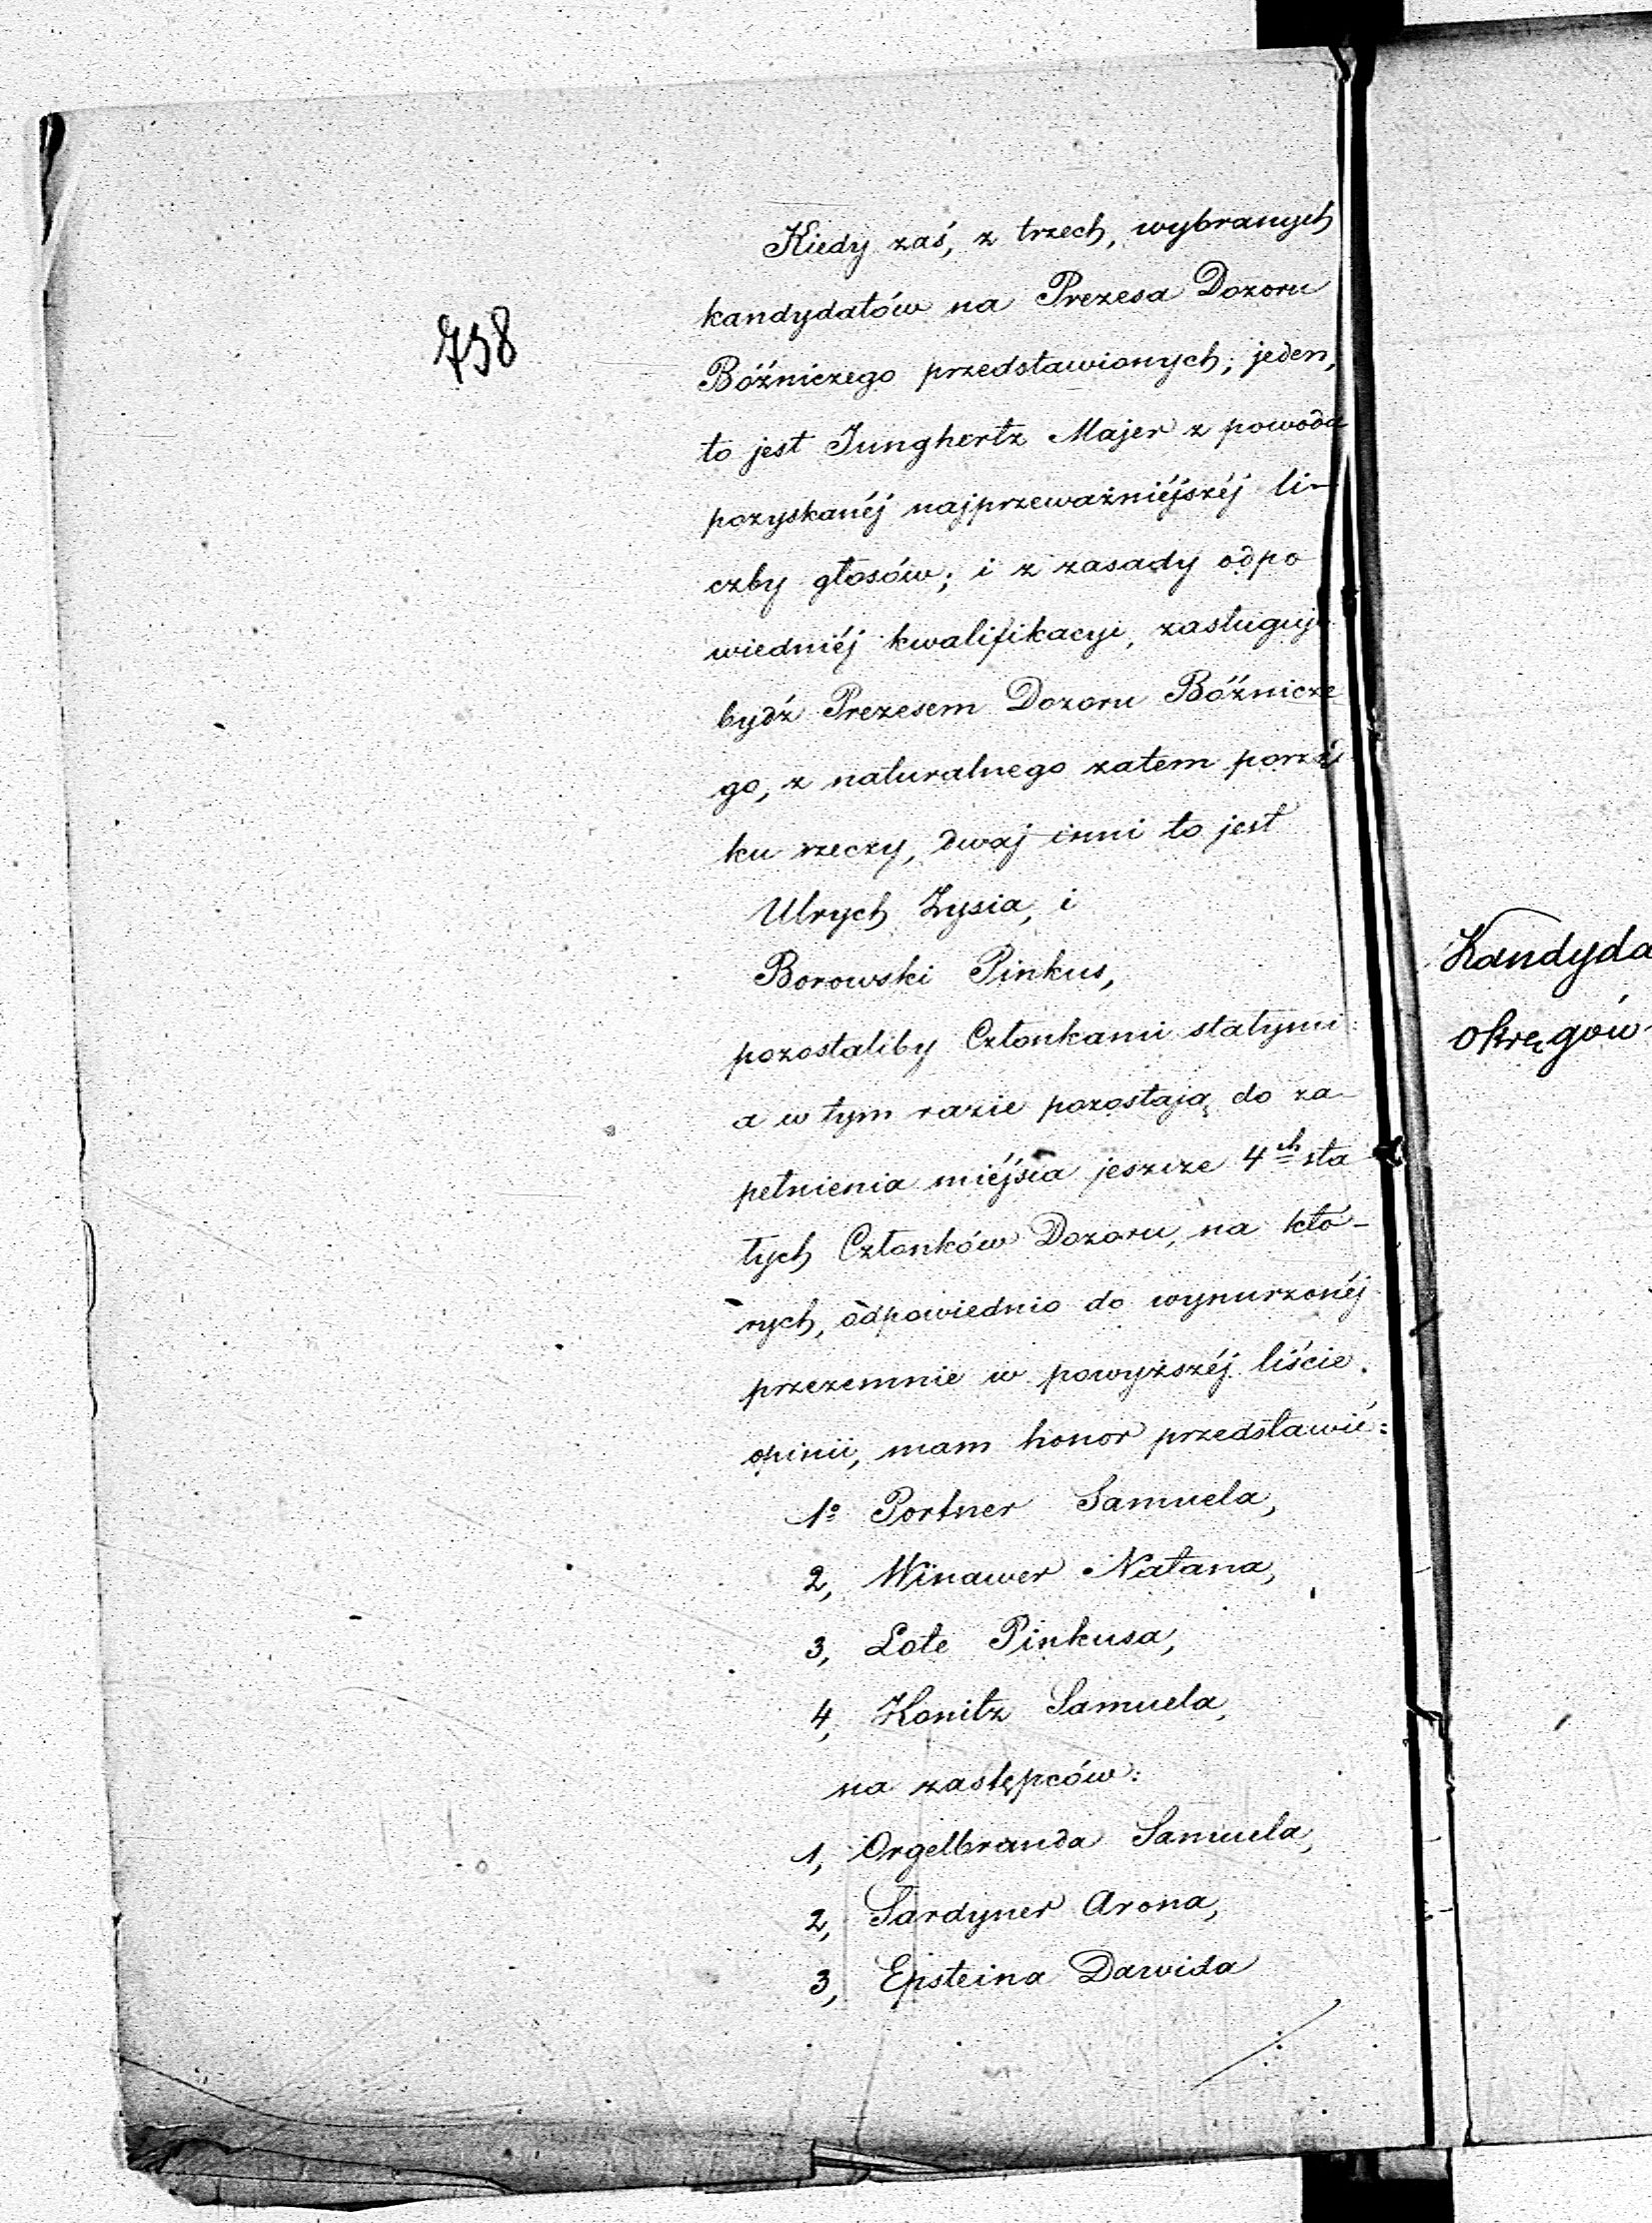 738
Kiedy zaś, z trzech, wybranych
kandydatów na Prezesa Dozoru
Bóźniczego przedstawionych, jeden,
to jest Junghertz Majer z powodu
pozyskanéj najprzeważniéjszéj li-
czby głosów; i z zasady odpo
wiedniéj kwalifikacyi, zasługuje
bydź Prezesem Dozoru Bóźnicze
go, z naturalnego zatem porzą
ku rzeczy, dwaj inni to jest
Ulrych Zysia, i
Borowski Pinkus,
pozostaliby Członkami stałymi:
a w tym razie pozostają do za-
pełnienia miéjsca jeszcze 4ch sta
łych Członków Dozoru, na któ-
rych, odpowiednio do wynurzonéj
przezemnie w powyższéj liście
opinii, mam honor przedstawić:
1o Portner Samuela,
2, Winawer Natana,
3, Lote Pinkusa,
4, Konitz Samuela,
na zastępców:
1, Orgelbranda Samuela,
2, Sardyner Arona,
3, Epsteina Dawida
Kandyda
okręgów